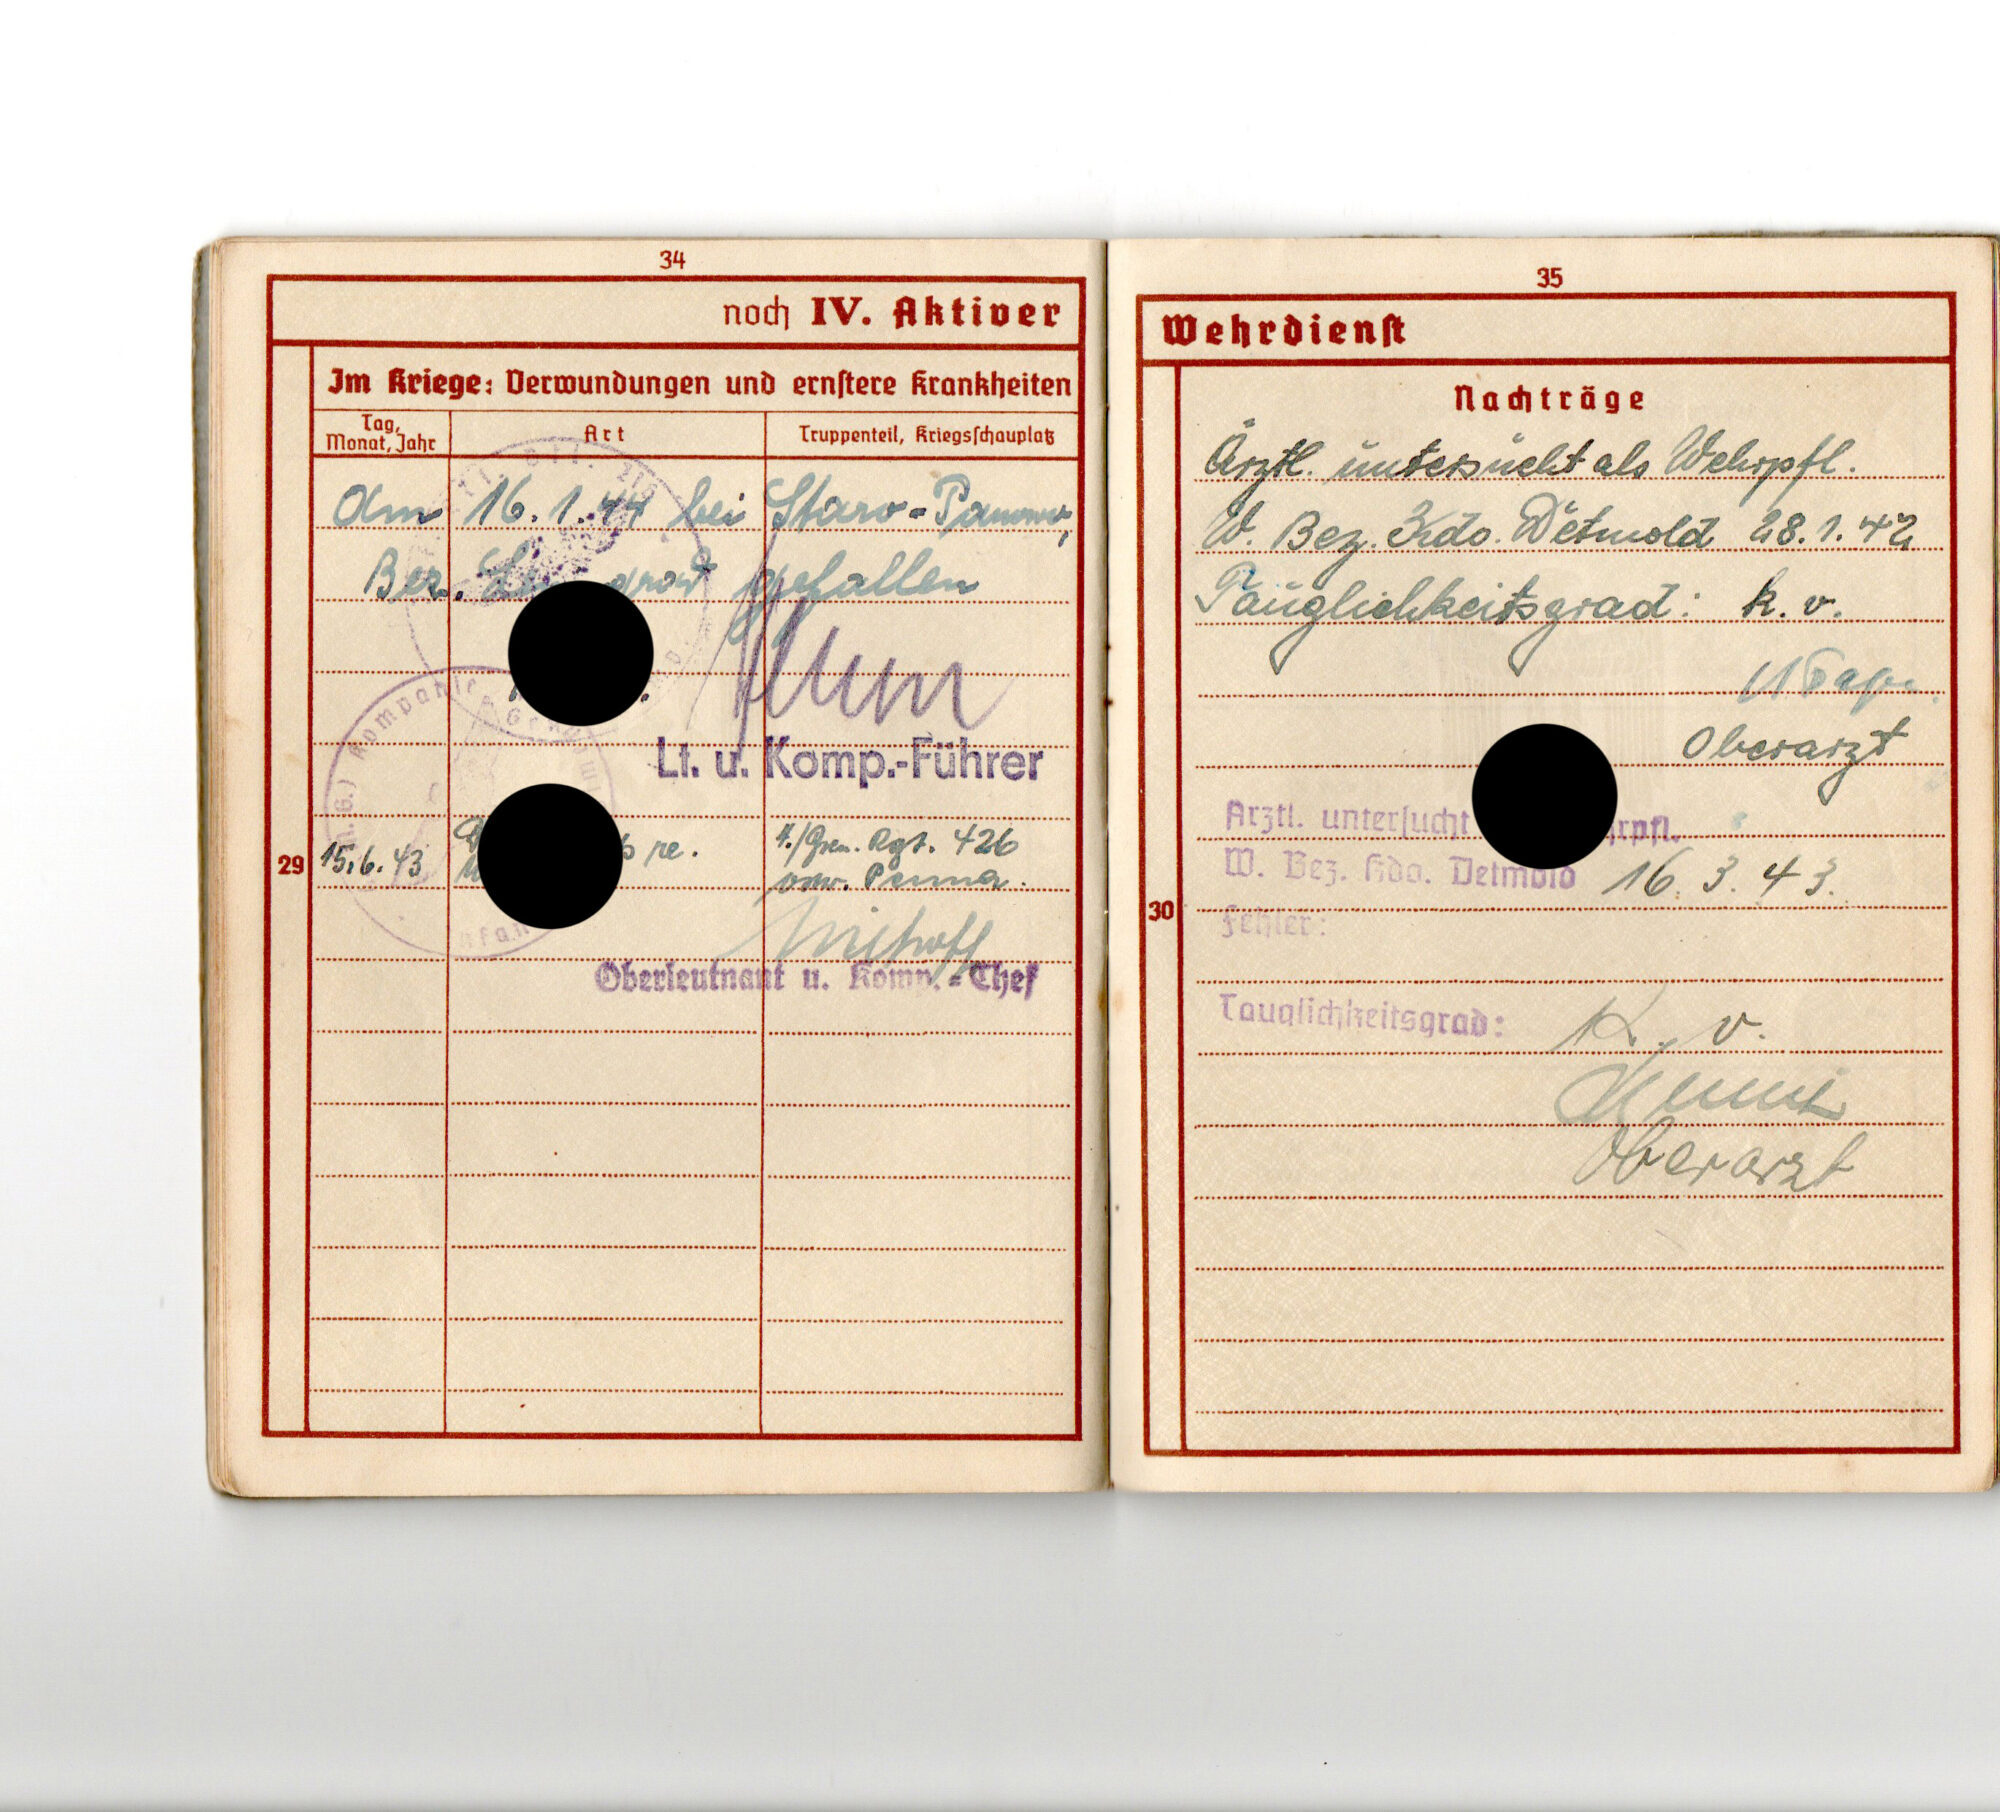 34
noch IV. Aktiver
Im Kriege: Verwundungen und ernstere Krankheiten
Tag, Monat, Jahr
Art
Truppenteil, Kriegsschauplatz
Am 16.1.44 bei Staro-Panowo,
Bez. gefallen
Lt. u. Komp.-Führer
29
15.6.43
4./Gren. Rgt. 426
Oberleutnant u. Komp.-Chef
35
Wehrdienst
Nachträge
Ärztl. untersucht als Wehrpfl.
W. Bez. Kdo. Detmold 28.1.42
Tauglichkeitsgrad: k. v.
Oberarzt
Ärztl. untersucht
W. Bez. Kdo. Detmold 16.3.43.
30
Fehler:
Tauglichkeitsgrad: K. v.
Oberarzt